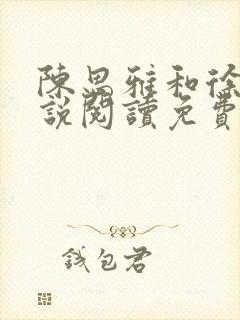 陳思雅和徐
說閱讀免費
錢包君